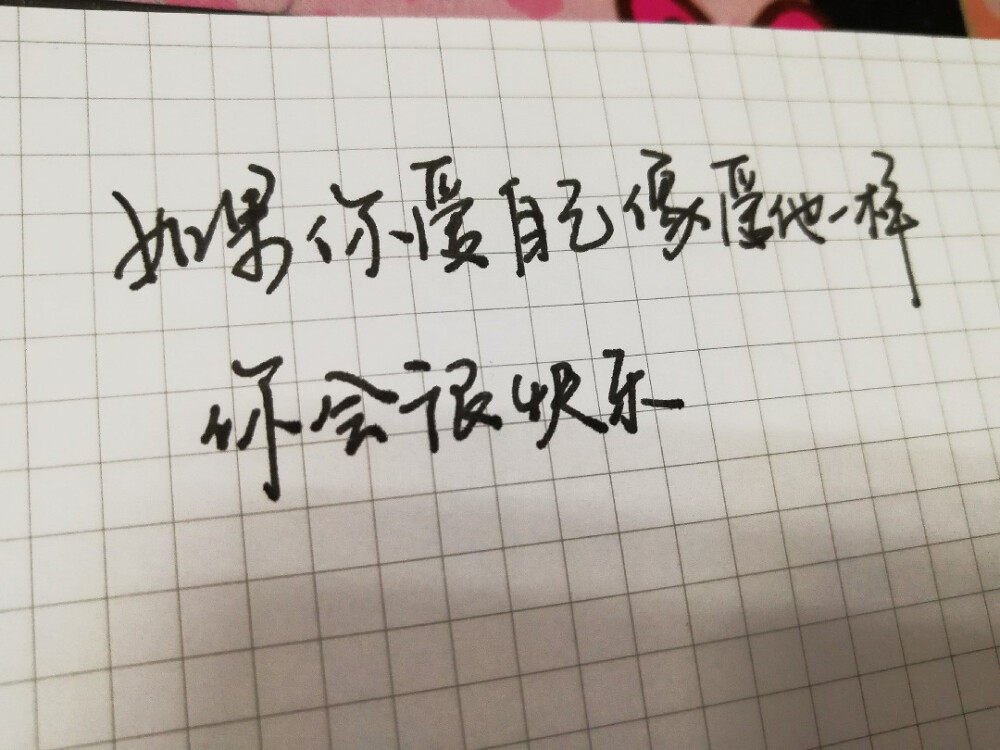 如果你爱自己像爱他一样
你会很快乐